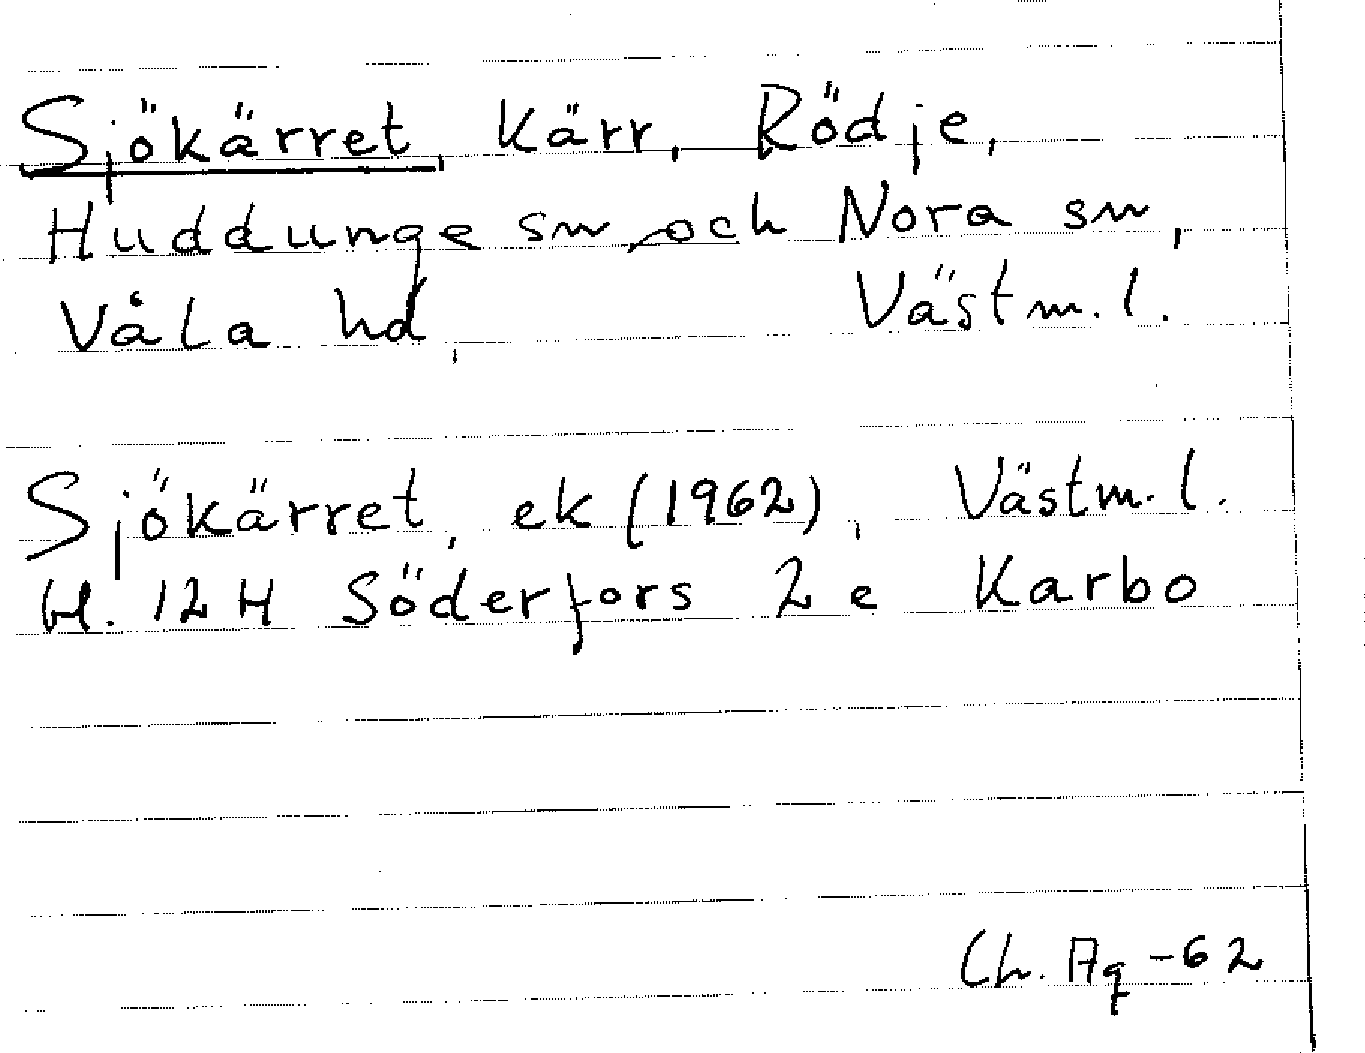 Sjökärret, Kärr, Rödje,
Huddunge sn och Nora sn,
Våla hd, Västm. l.
Sjökärret, ek (1962), Västm. l.
bl. 12 H Söderfors 2 e Karbo
Ch. Aq -62